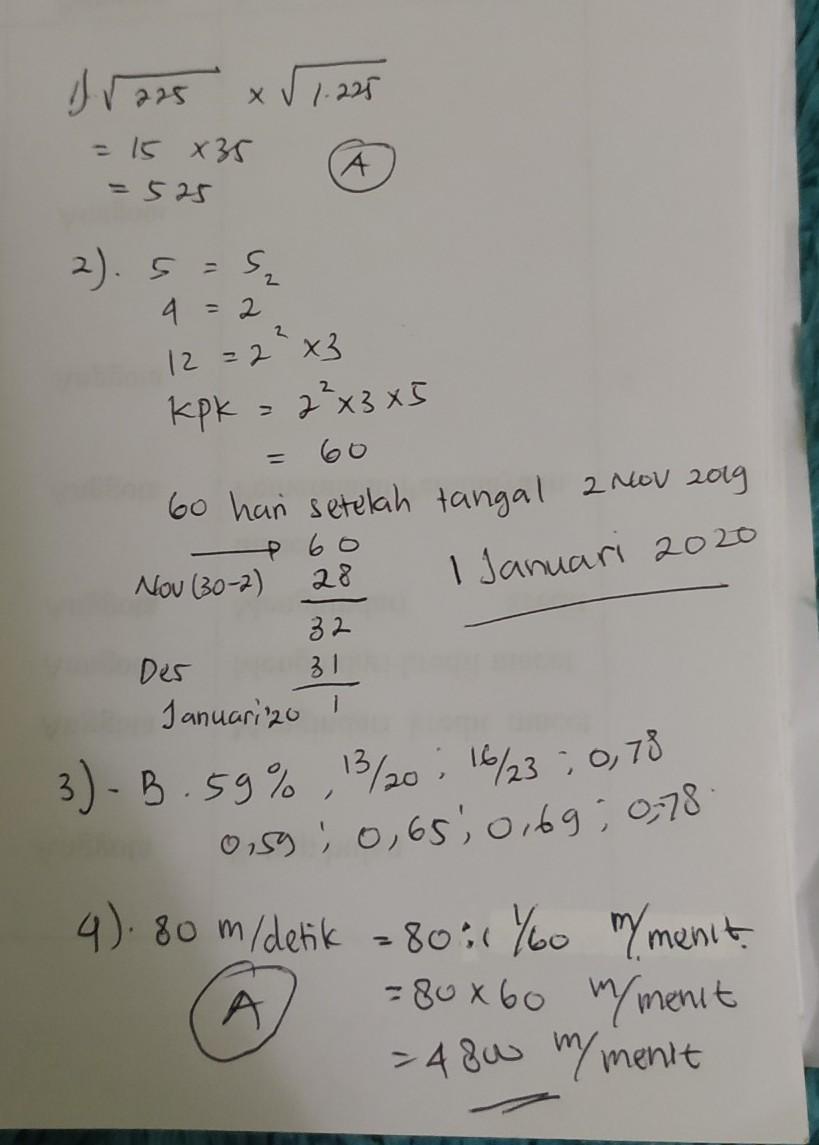 1) √225 × √1.225
= 15 × 35
A
= 525
2). 5 = 5
4 = 2²
12 = 2² × 3
KPK = 2² × 3 × 5
= 60
60 hari setelah tangal 2 Nov 2019
→ 60
Nov (30-2) 28
1 Januari 2020
32
Des 31
Januari '20 1
3) - B. 59%, 13/20 ; 16/23 ; 0,78
0,59 ; 0,65 ; 0,69 ; 0,78
4). 80 m/detik = 80 : 1/60 m/menit.
A
= 80 × 60 m/menit
= 4800 m/menit